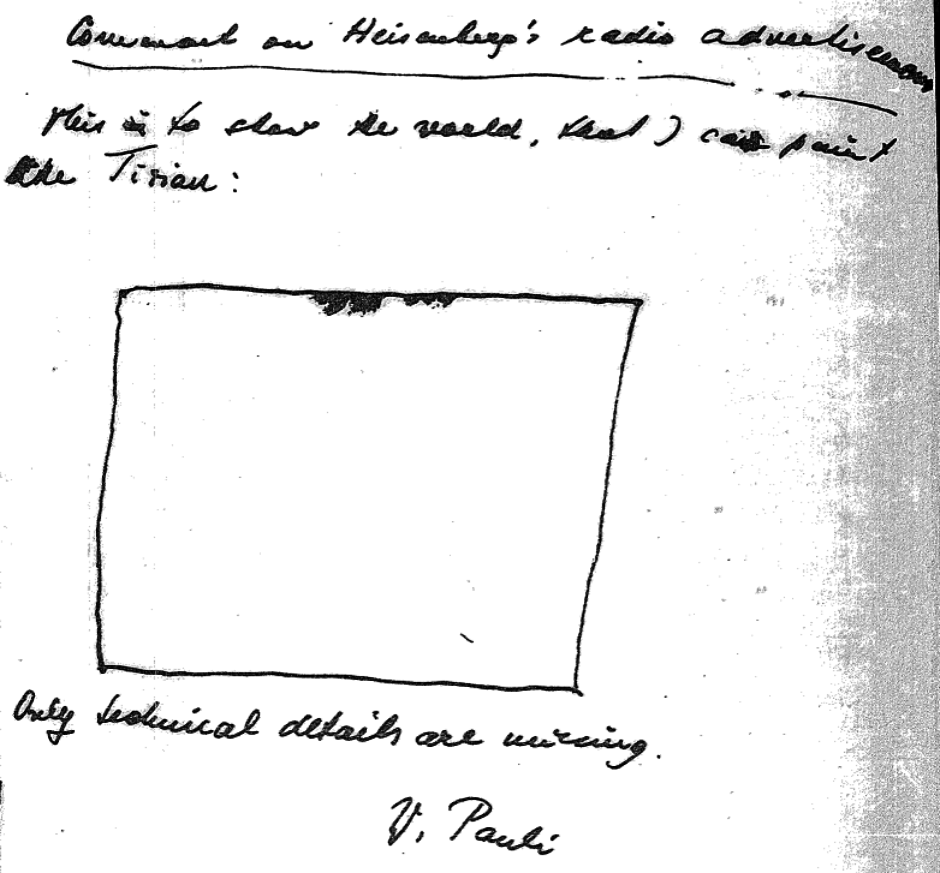 Comment on Heisenberg's radio advertisement
This is to show the world, that I can paint
like Tizian:
Only technical details are missing.
W. Pauli